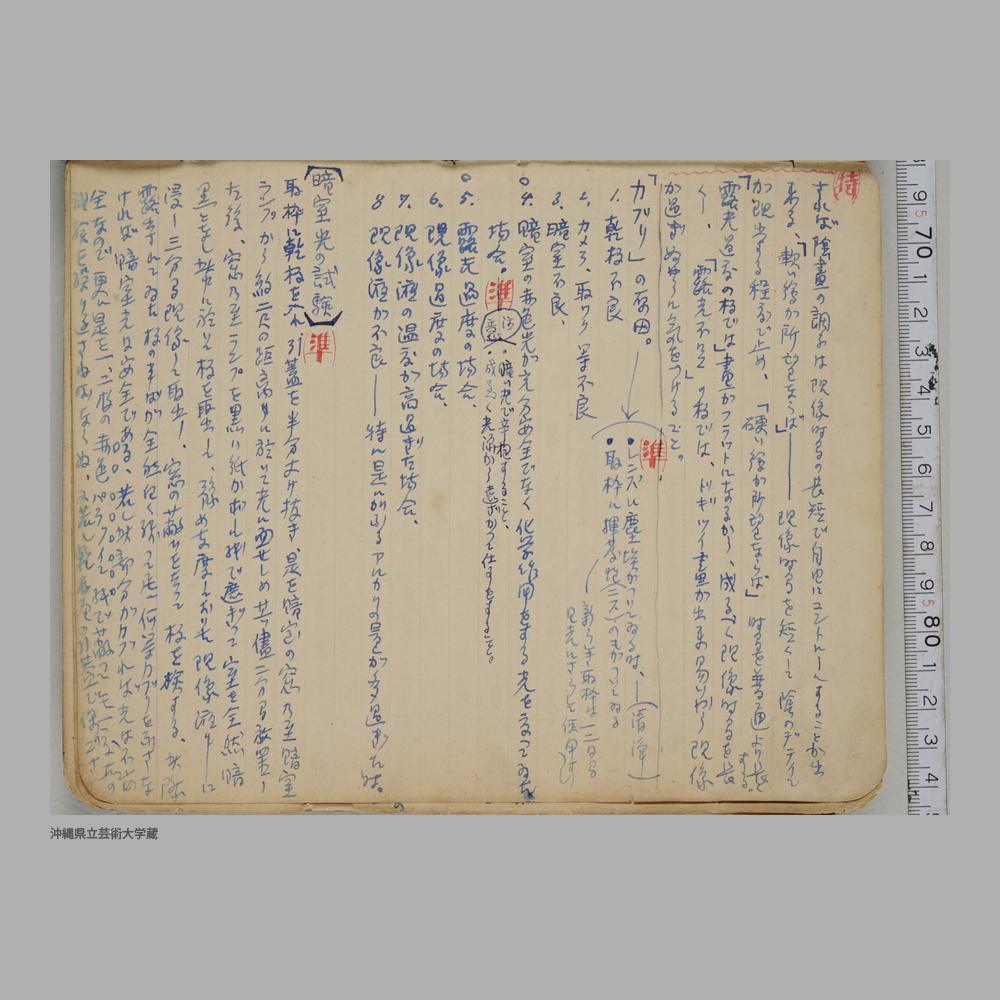 すれば陰畫の調子は現像時間の長短で自由にコントロールすることが出
来る、「軟い像が所望ならば」――現像時間を短くして陰のデテイル
が現出する程度で止め、「硬い像が所望ならば」時間を普通より長くする。
「露光過度の板では」畫がフラットになるから、成るべく現像時間を長
く、「露光不足」の板では、ドギツイ畫が出来易いから現像
が過ぎぬやうに気をつけること。
準
「カブリ」の原因。
レンズに塵埃がついてゐる時、―(清浄)
取枠に揮發性(ニス)のものがついてゐる
新らしき取枠は一二日間
日光にさらして使用すべし
1. 乾板不良
2. カメラ、取ワク等不良
3. 暗室不良、
4. 暗室の赤色光が充分安全でなく化学作用をする光を交へてゐた
場合。
準
注意
暗い光で辛抱すること、
成るべく光源から遠ざかって仕事をすること。
5. 露光過度の場合、
6. 現像過度の場合、
7. 現像液の温度が高過ぎた場合、
8 現像液が不良――特に是に加ふるアルカリの量が多過ぎた時。
【暗室光の試験】
準
取枠に乾板を入れ引蓋を半分丈け抜き、是を暗室の窓乃至暗室
ランプから約二尺の距離に於いて光に面せしめ其儘二分間放置し
た後、窓乃至ランプを黒い紙かボール紙で遮ぎって室を全然暗
黒となし
板を取出し豫め支度しおける現像液中に
浸し三分間現像して取出し、窓の蔽ひをとって板を検する、此際
露出されてゐた板の半ばが全然白く残って毛一何等カブリを示さな
ければ暗室光は安全である、若し此部分がカブれば光は不安
全なので更に是を一、二枚の赤色パラフイン紙で蔽って
試験を繰り返さなければならぬ、又若し乾板面の引蓋で
沖縄県立芸術大学蔵